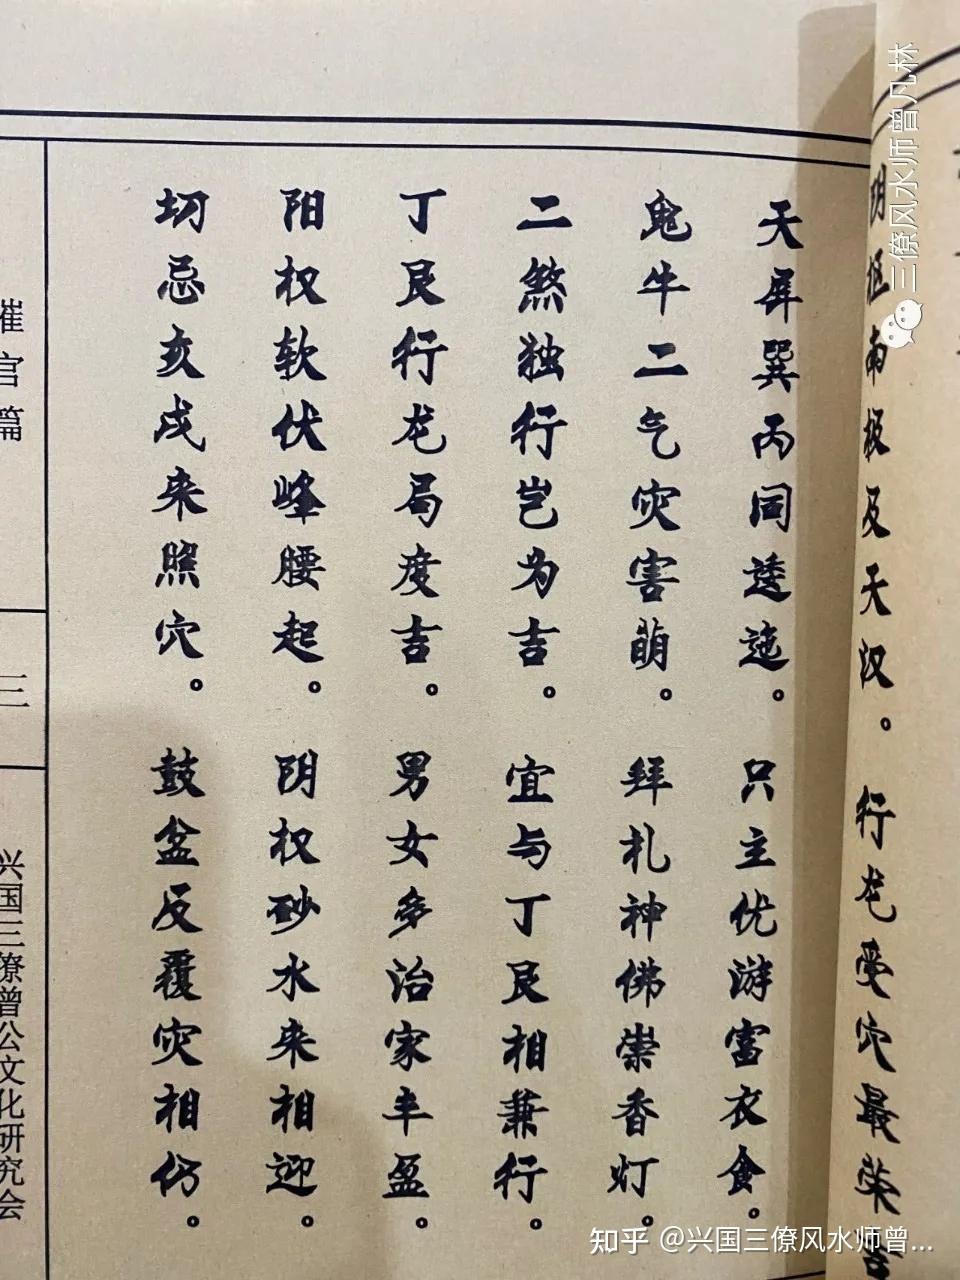 阴
南极及天汉。行龙受穴最荣
天屏巽丙同逶迤。只主优游富衣食。
鬼牛二气灾害萌。拜札神佛崇香灯。
二煞独行岂为吉。宜与丁艮相兼行。
丁艮行龙局度吉。男女多治家丰盈。
阳权软伏峰腰起。阴权砂水来相迎。
切忌亥戌来照穴。鼓盆反覆灾相仍。
催官篇
三
兴国三僚曾公文化研究会
三僚风水师曾凡林
知乎 @兴国三僚风水师曾...